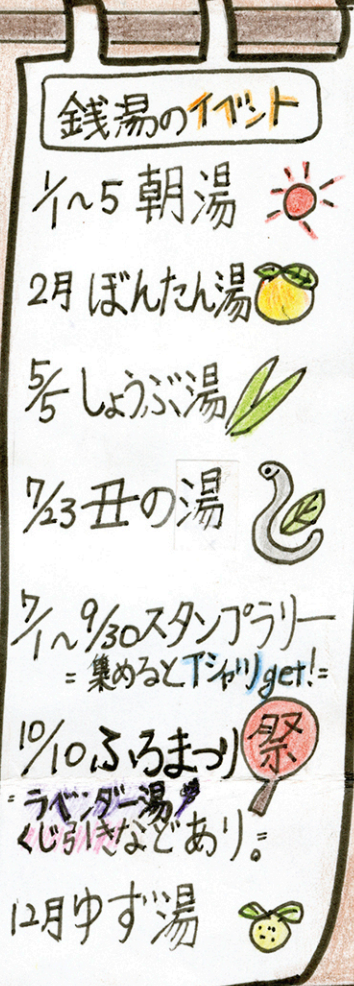 銭湯のイベント
1/1〜5 朝湯
2月 ぼんたん湯
5/5 しょうぶ湯
7/23 丑の湯
7/1〜9/30 スタンプラリー
=集めるとTシャツget!=
10/10 ふろまつり 祭
=ラベンダー湯
くじ引きなどあり。=
12月 ゆず湯